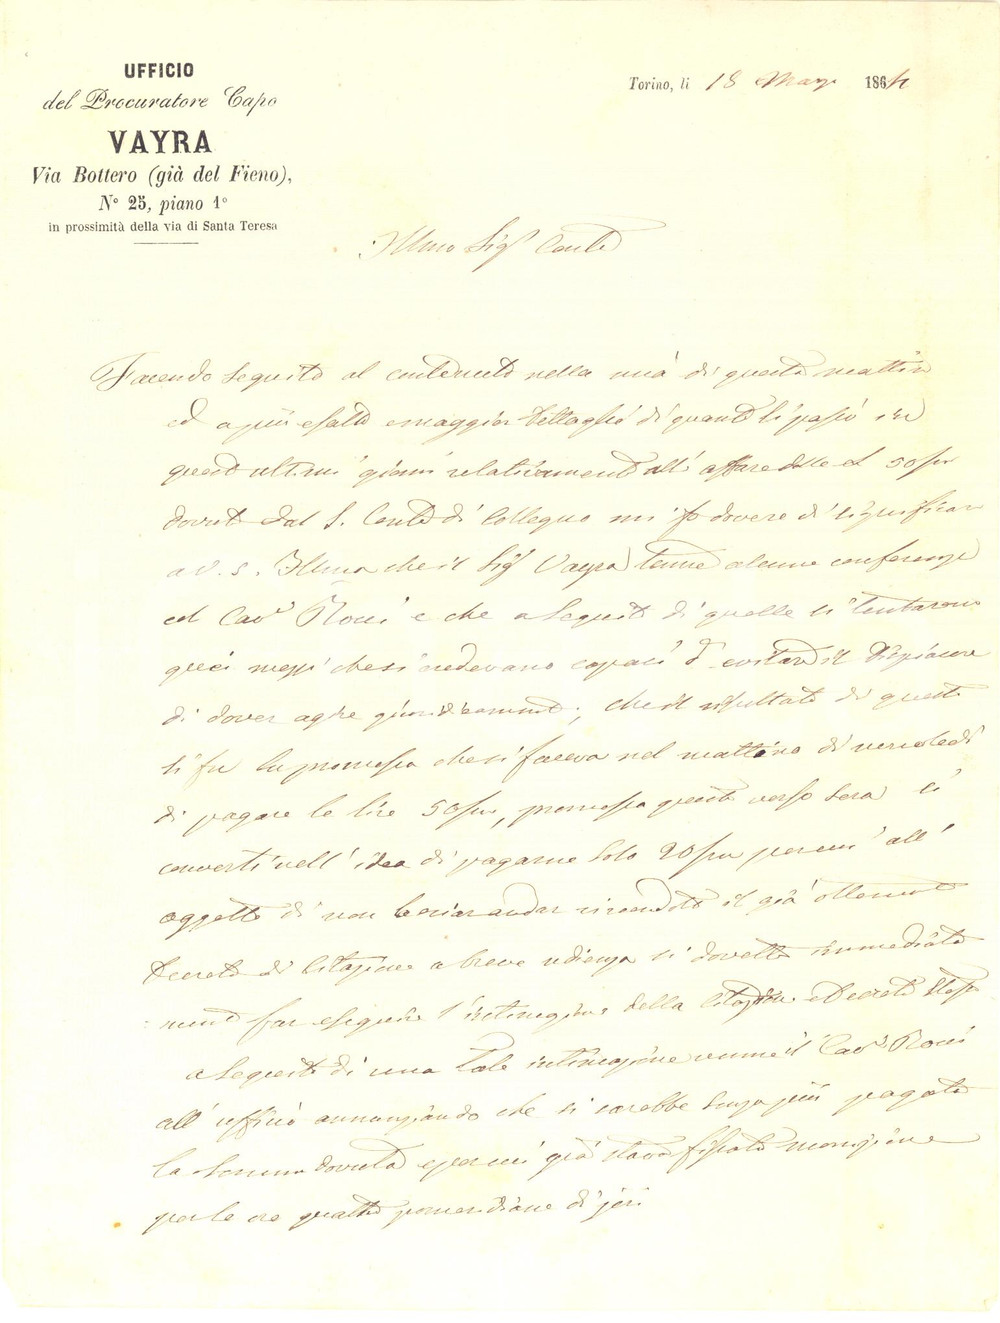 UFFICIO
del Procuratore Capo
VAYRA
Via Bottero (già del Fieno),
N° 25, piano 1°
in prossimità della via di Santa Teresa
Torino, li 18 1864
Illmo Sigr Conte
Facendo seguito al contenuto nella mia di questa mattin
ed a più esatto e maggior dettaglio di quanto si passò in
questi ultimi giorni relativamente all' affare delle L 50/m
dovute dal S. Conte di Collegno mi fo dovere di significar
a V. S. Illma che il Sigr Vayra tenne alcune conferenze
col Cavr Rossi e che a seguito di quelle si tentarono
quei mezzi che si credevano capaci d' evitare il dispiacere
di dover agire giuridicamente; che il risultato di questi
si fu la promessa che si faceva nel mattino di mercoledì
di pagare le lire 50/m, promessa questa verso sera si
convertì nell' idea di pagarne solo 20/m percui all'
oggetto di non lasciar andar il già ottenuto
Decreto di Citazione a breve udienza si dovette immediata
mente far eseguire l'intimazione della Citazione e Decreto stesso
a seguito di una tale intimazione venne il Cavr Rossi
all' ufficio annunziando che si sarebbe senza più pagata
la somma dovuta e percui già stava fissata
per le ore quattro pomeridiane di jeri